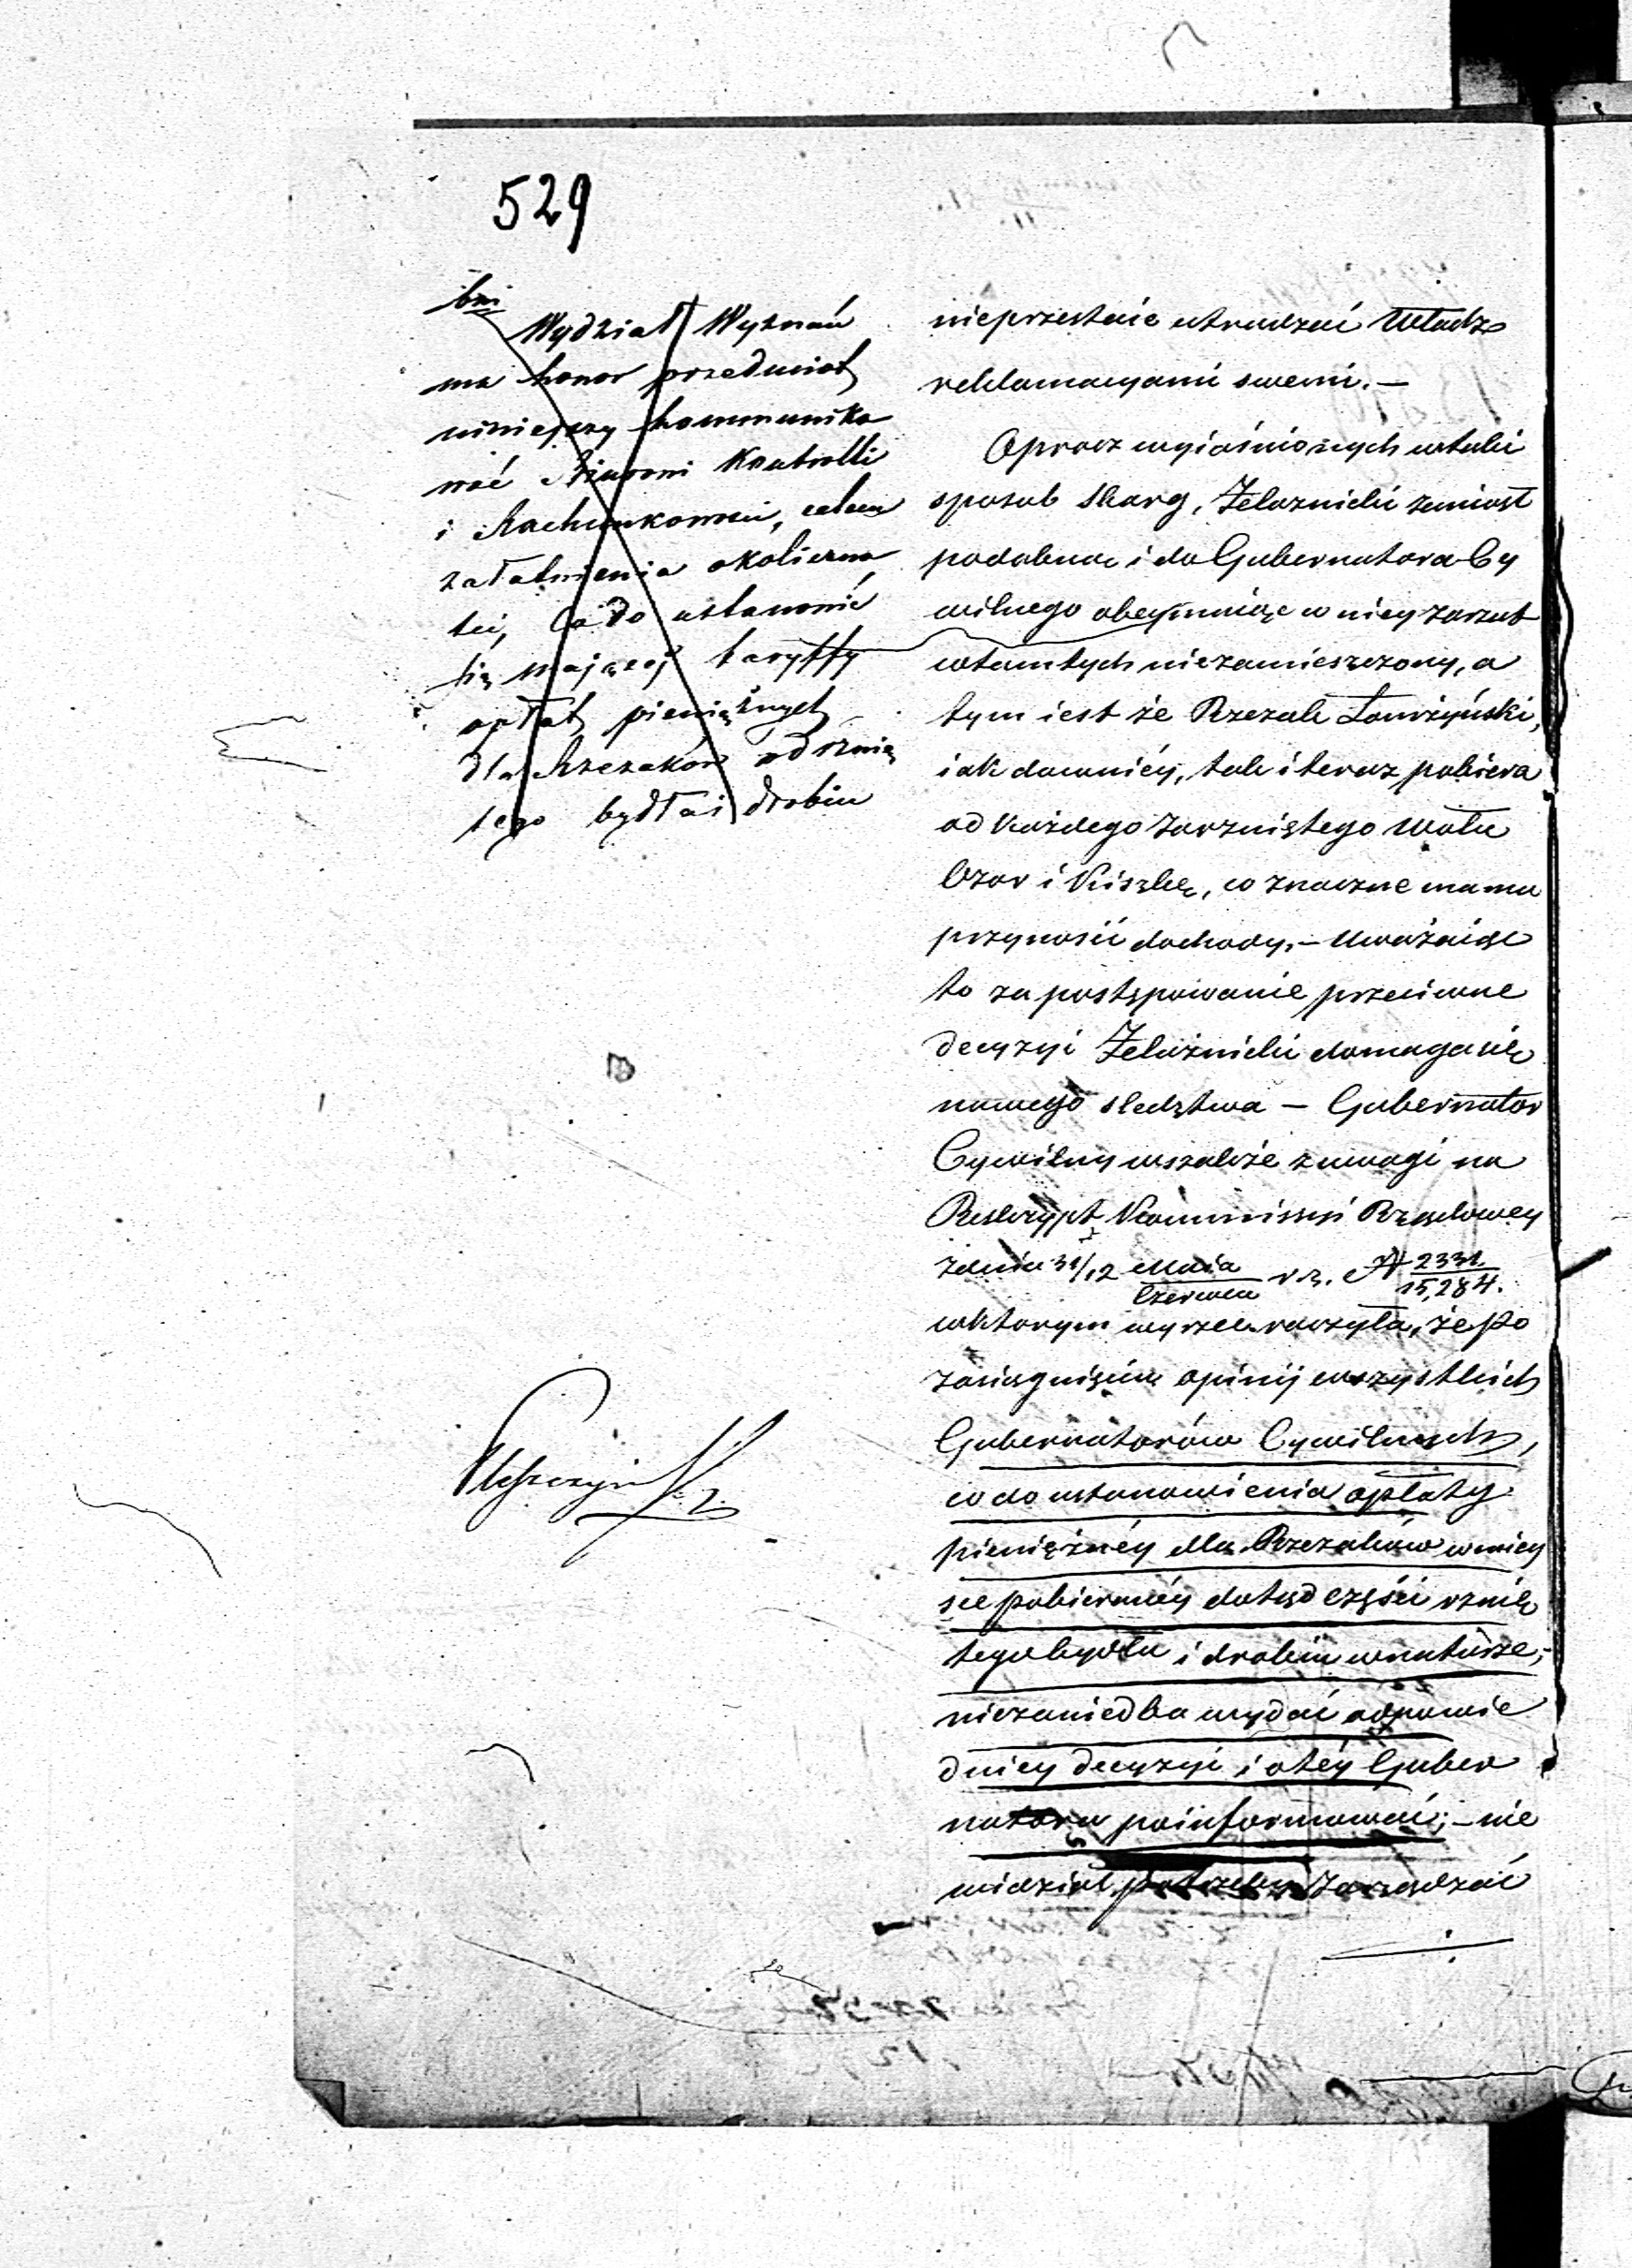 529
Wydział Wyznań
ma honor przedmiot
niniejszy kommuniko
wać Biuroni Kontrolli
i Rachunkowości, celem
załatwienia okoliczno
ści, co do ustanowić
się mającej taryffy
opłat pieniężnych
dla Rzezaków od rznię
tego bydła i drobiu
nieprzestaie utrudzać Władz
reklamacyami swemi. —
Oprocz wyiaśnionych w taki
sposob skarg, Zelaznicki zaniosł
podobną i do Gubernatora Cy
wilnego obeymuiąc w niey zarzut
w tamtych niezamieszczony, a
tym iest że Rzezak Lawrzyński,
iak dawniéy, tak i teraz pobiera
od każdego zarzniętego wołu
Ozor i Kiszkę, co znaczne ma mu
przynosić dochody. – Uważaiąc
to za postępowanie przeciwne
decyzyi Zelaźnicki domaga się
nowego sledztwa — Gubernator
Cywilny wszakże z uwagi na
Reskrypt Kommissyi Rządowey
z dnia 31/12 Maia/Czerwca r. z. N 2331/15,284.
w ktorym wyrzec raczyła, że po
zasiągnięciu opinij wszystkich
Gubernatorów Cywilnych,
co do ustanowienia opłaty
pieniężnéy dla Rzezaków w miey
sce pobieranéy dotąd części rznię
tego bydła i drobiu w naturze,
niezaniedba wydać odpowie
dniey decyzyi i o téy Guber
natora poinformować; – nie
widział potrzeby zarządzać